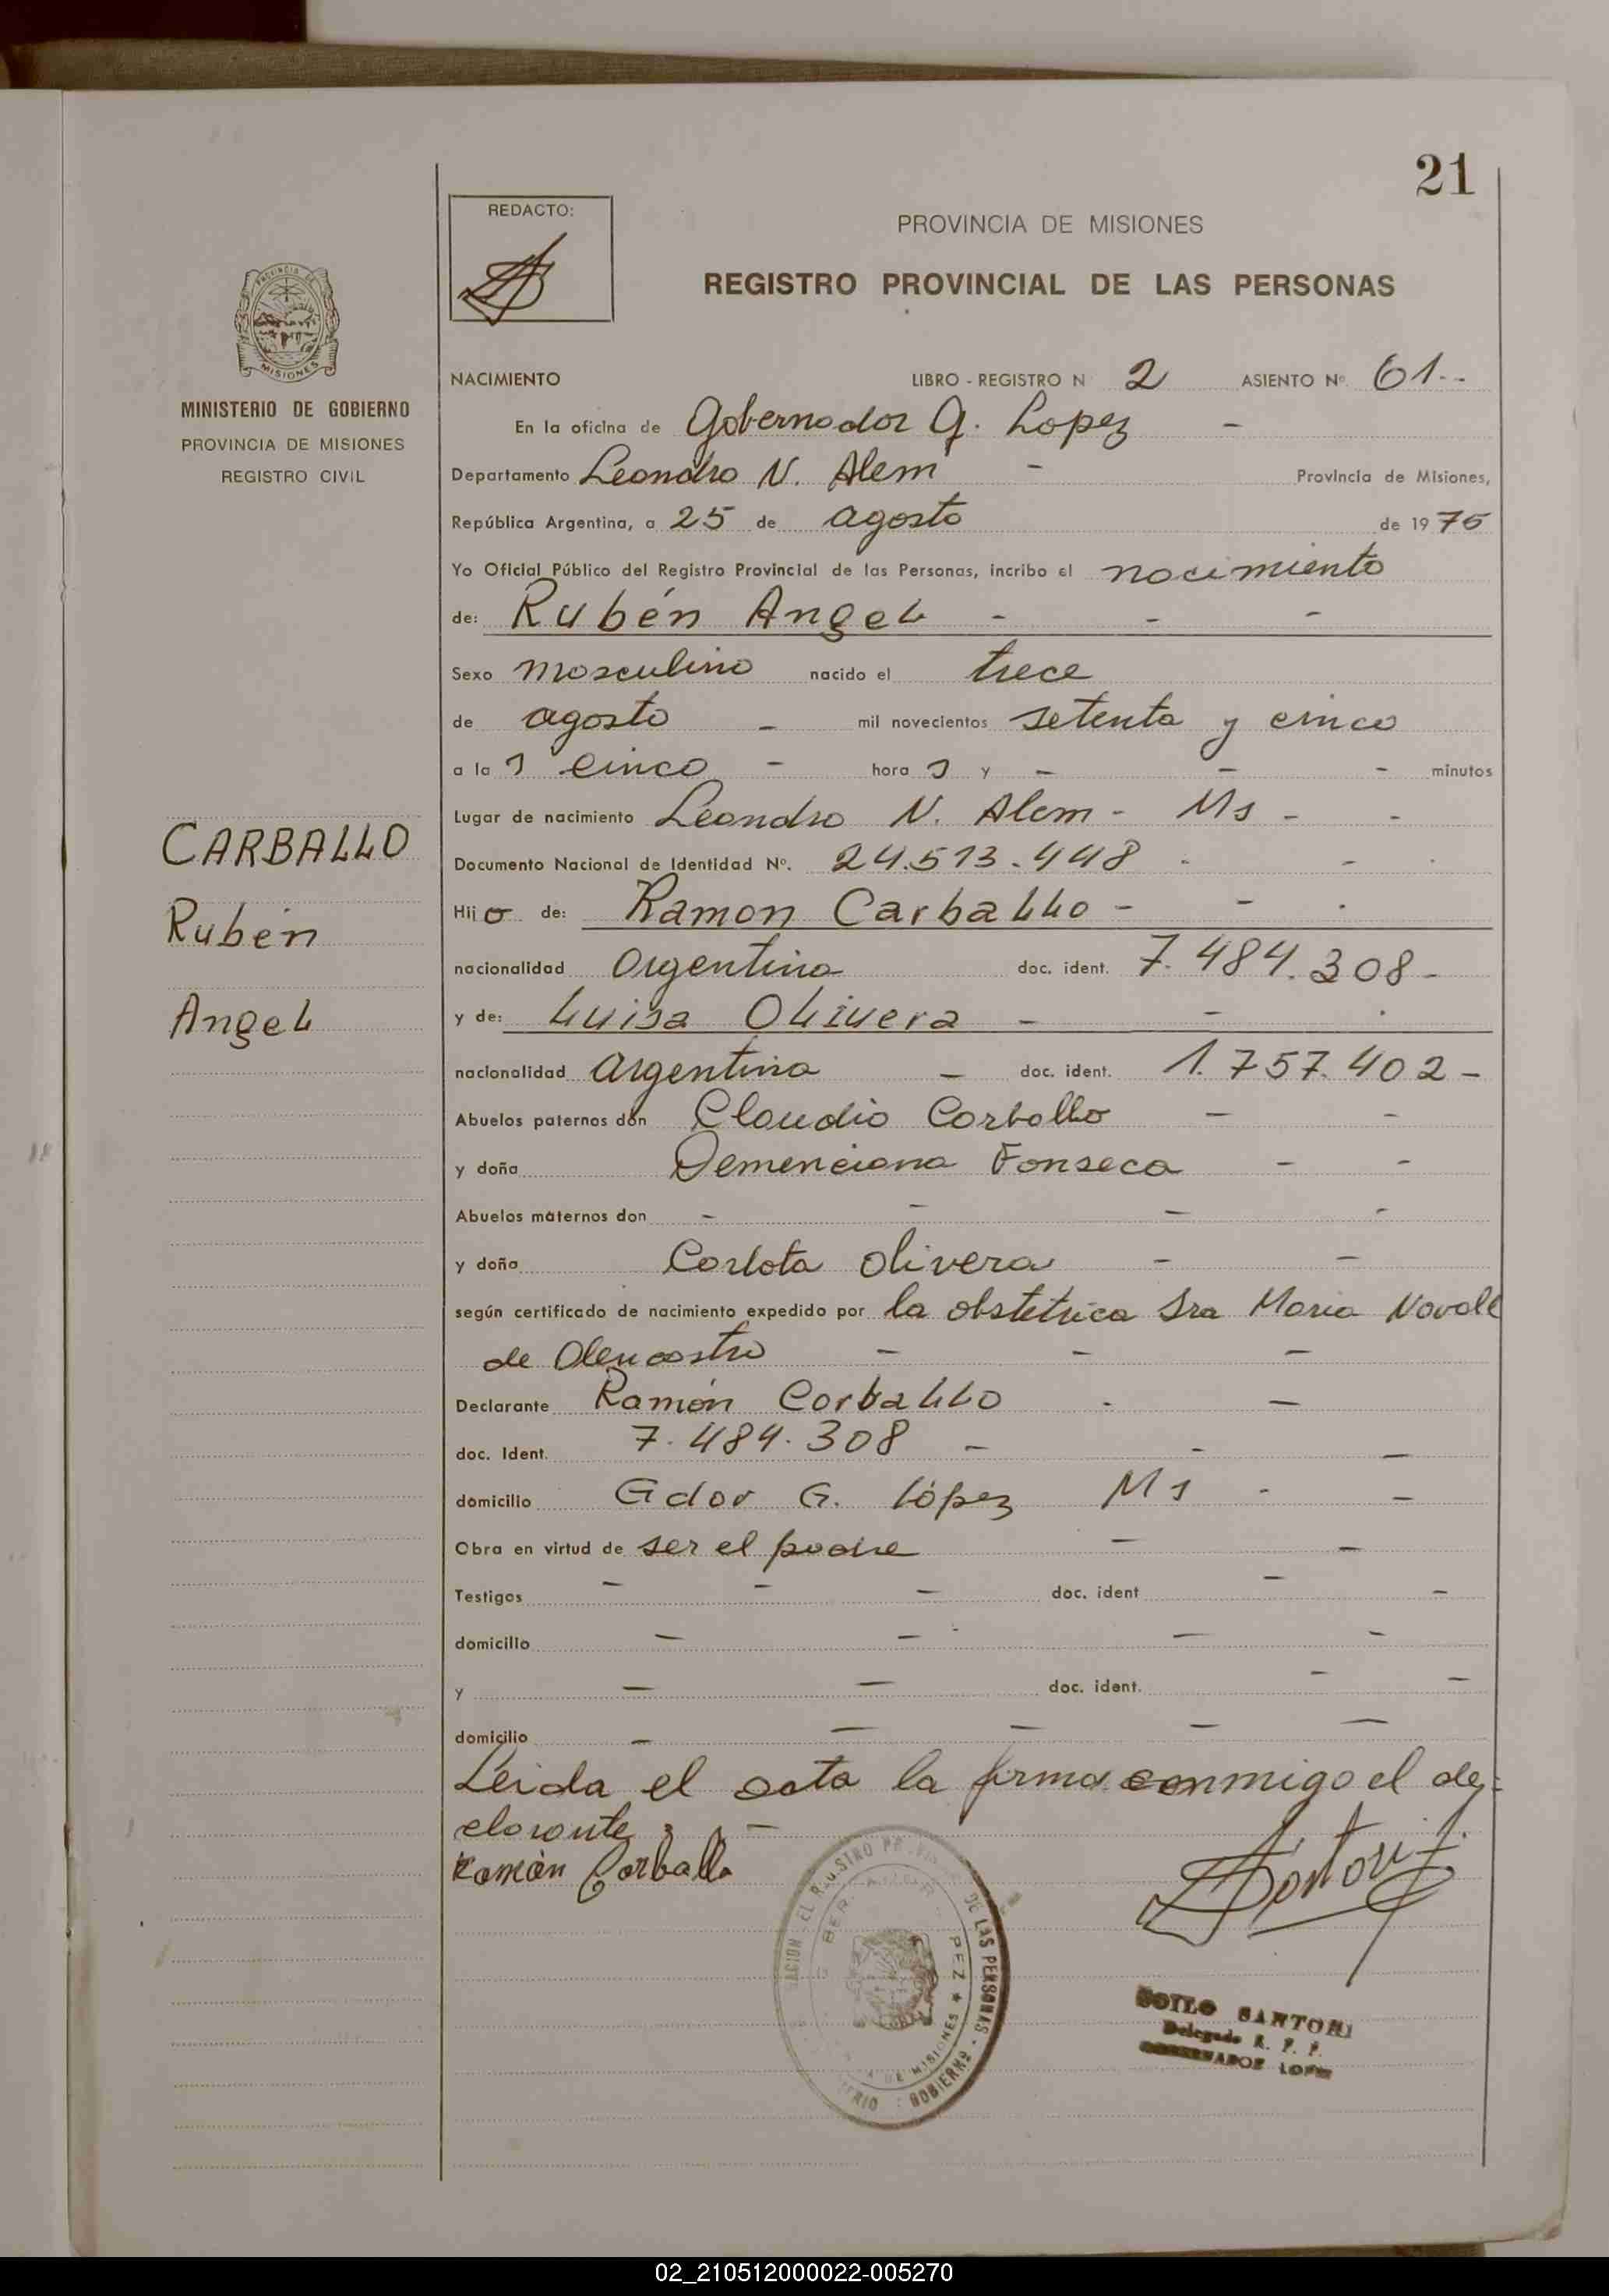 21
REDACTO:
PROVINCIA DE MISIONES
REGISTRO PROVINCIAL DE LAS PERSONAS
MISIONES
MINISTERIO DE GOBIERNO
PROVINCIA DE MISIONES
REGISTRO CIVIL
CARBALLO
Rubén
Angel
NACIMIENTO LIBRO - REGISTRO N 2 ASIENTO Nº. 61--
En la oficina de Gobernador G. Lopez -
Departamento Leandro N. Alem - Provincia de Misiones,
República Argentina, a 25 de agosto de 1975
Yo Oficial Público del Registro Provincial de las Personas, incribo el nacimiento
de: Rubén Angel - - -
Sexo masculino nacido el trece
de agosto - mil novecientos setenta y cinco
a la s cinco - hora s y - - - minutos
Lugar de nacimiento Leandro N. Alem - Ms - -
Documento Nacional de Identidad Nº. 24.513.448 - -
Hij o de: Ramon Carballo - - -
nacionalidad Argentina doc. ident. 7.484.308-
y de: Luisa Olivera - - -
nacionalidad Argentina - doc. ident. 1.757.402-
Abuelos paternos don Claudio Carballo - -
y doña Demenciana Fonseca - -
Abuelos maternos don - - - -
y doña Carlota Olivera - -
según certificado de nacimiento expedido por la obstetrica Sra Maria
de - - -
Declarante Ramón Carballo - -
doc. Ident. 7.484.308 - - -
domicilio Gdor G. López Ms - -
Obra en virtud de ser el padre - -
Testigos - - - doc. ident - -
domicilio - - - -
y - - doc. ident. - -
domicilio - - - - -
Leida el acta la firma conmigo el de-
clarante -
Ramón Carballo
Santori
REGISTRO DE LAS PERSONAS - GOBIERNO
DE MISIONES
SANTORI
Delegado R. P. P.
GOBERNADOR LOPEZ
02_210512000022-005270